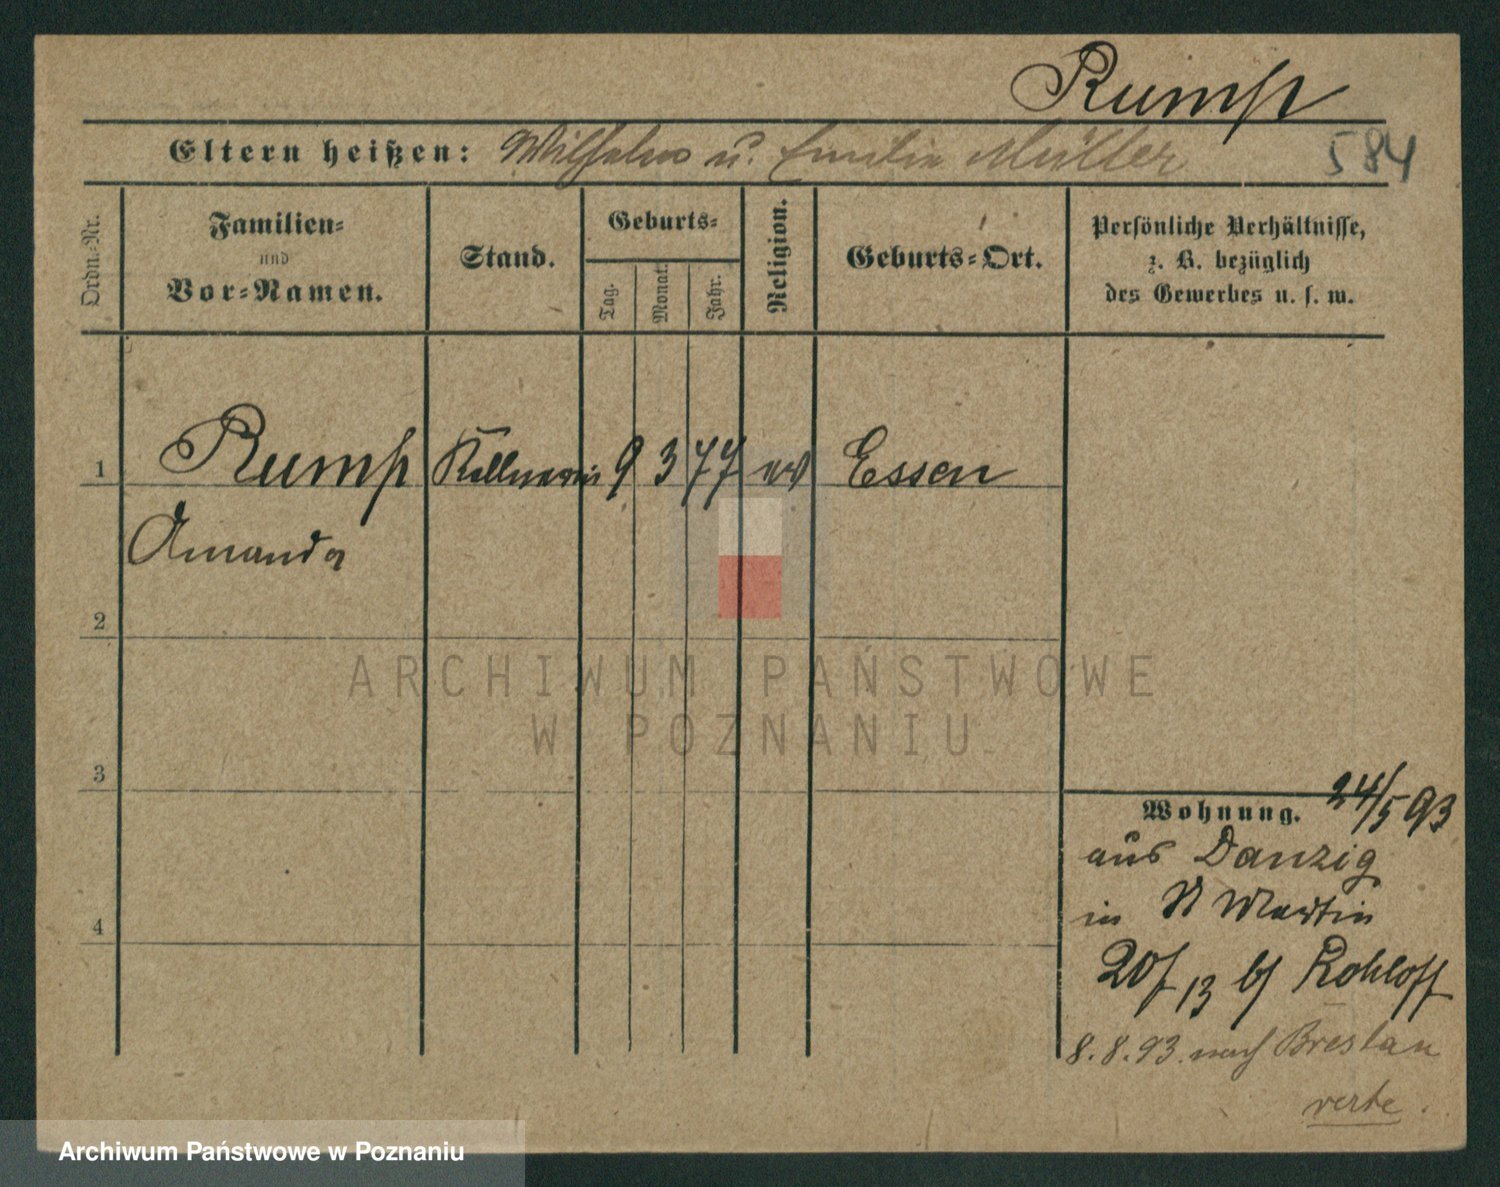 Rump
Eltern heißen: Wilhelm u. Emilie Müller
584
Ordn.-Nr.
Familien-
und
Vor-Namen.
Stand.
Geburts-
Tag.
Monat.
Jahr.
Religion.
Geburts-Ort.
Persönliche Verhältnisse,
z. B. bezüglich
des Gewerbes u. s. w.
1 Rump Kellnerin 9 3 77 ev Essen
Amanda
2
3
4
ARCHIWUM PAŃSTWOWE
W POZNANIU
Wohnung. 24/5 93
aus Danzig
in St Martin
13 b/ Rohloff
8.8.93. nach Breslau
verte.
Archiwum Państwowe w Poznaniu